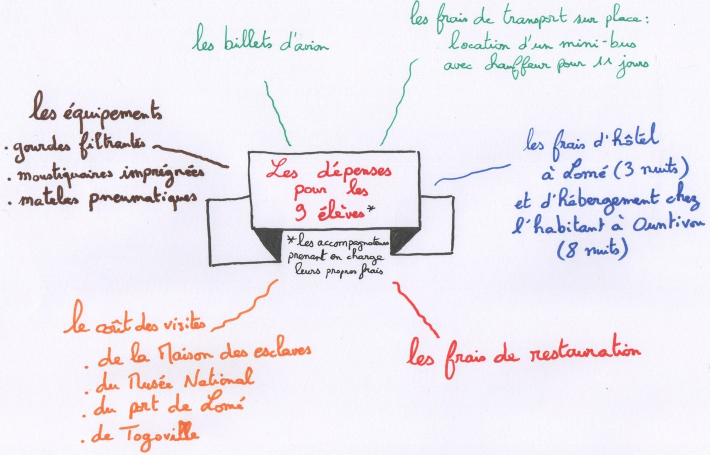 les billets d'avion
les frais de transport sur place :
location d'un mini-bus
avec chauffeur pour 11 jours
les équipements
. gourdes filtrantes
. moustiquaires imprégnées
. matelas pneumatiques
Les dépenses
pour les
9 élèves*
*les accompagnateurs
prennent en charge
leurs propres frais
les frais d'hôtel
à Lomé (3 nuits)
et d'hébergement chez
l'habitant à Ountivou
(8 nuits)
le coût des visites
. de la Maison des esclaves
. du Musée National
. du port de Lomé
. de Togoville
les frais de restauration